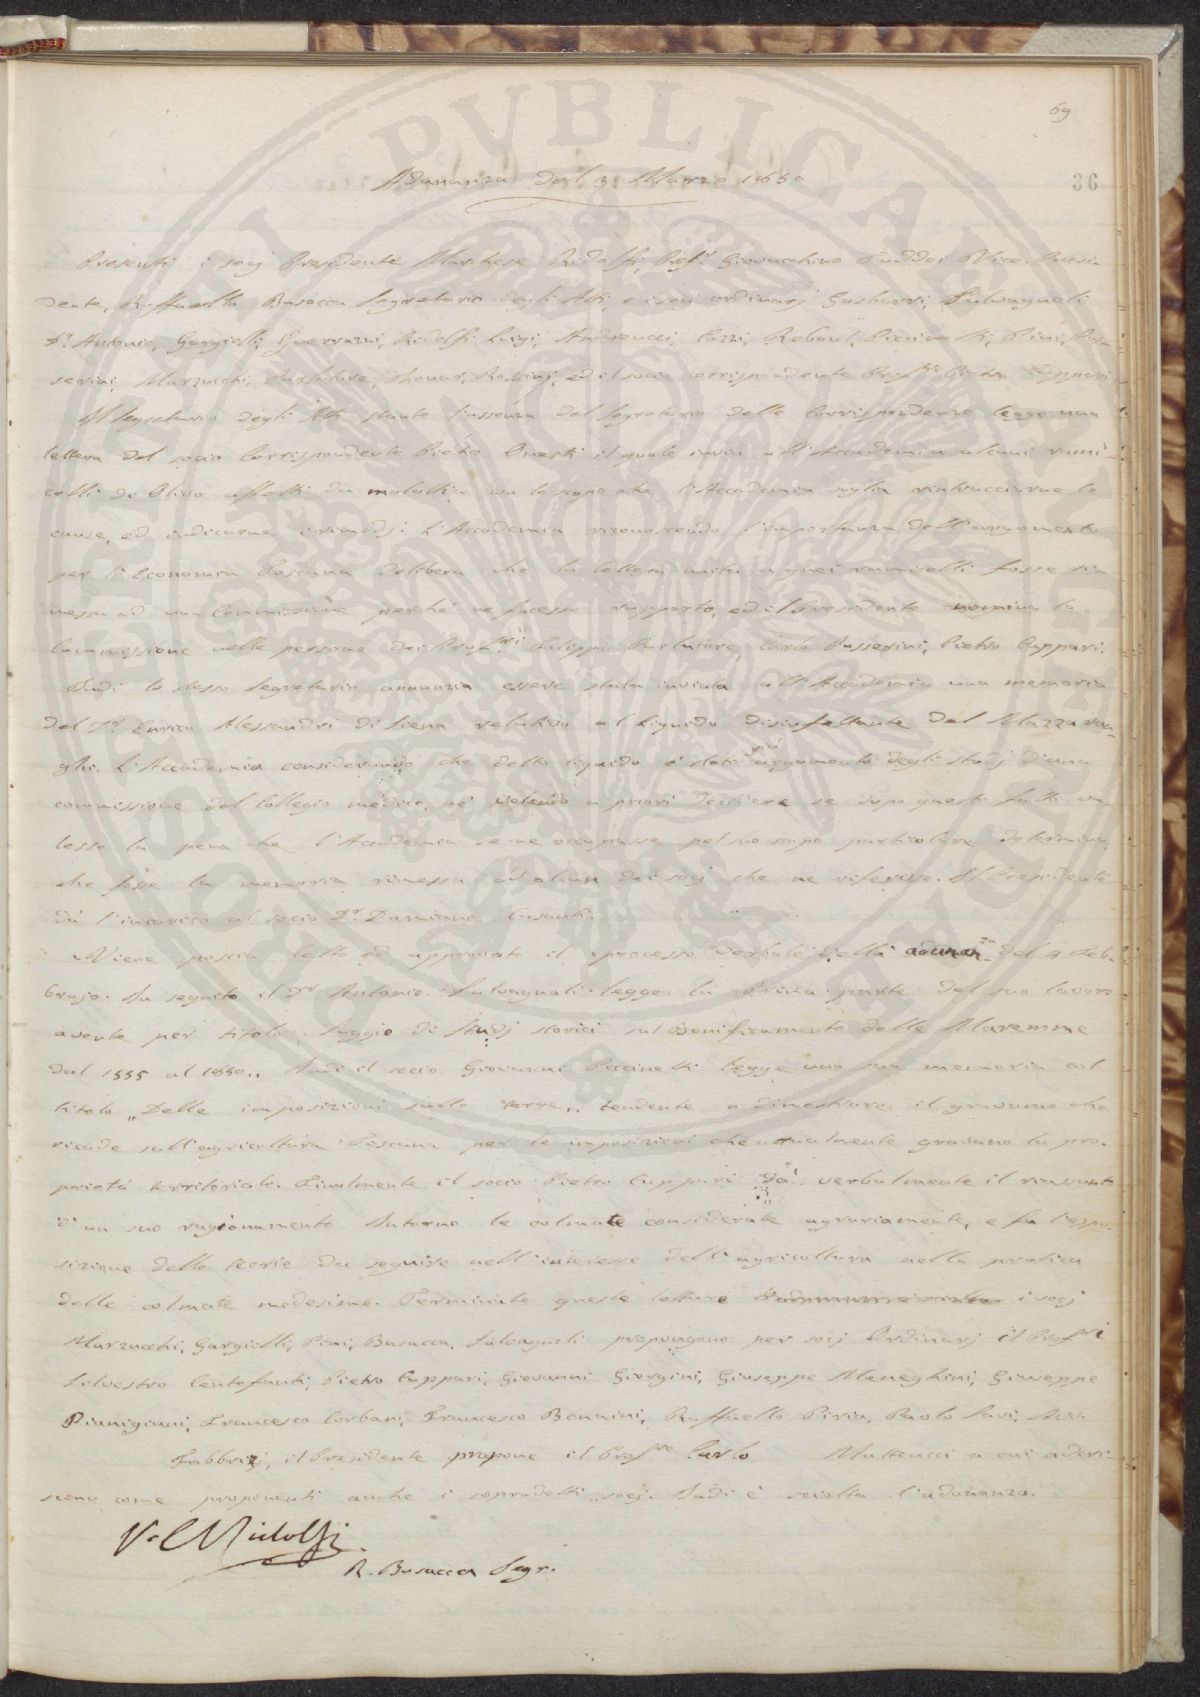 69
36
Adunanza del 3 Marzo 1850
Presenti i socj Presidente Marchese Ridolfi, Prof.r Giovacchino Taddei Vice Presi-
dente, Raffaello Busacca Segretario degli Atti, e i socj ordinarj Gasbarri, Salvagnoli
D.r Antonio, Gargiolli, Guerrazzi, Ridolfi Luigi, Andreucci, Cozzi, Reboul, Piccinetti, Pini, Pas-
serini, Marzucchi, Parlatore, Thouar, Rossini, ed il socio corrispondente Prof.re Pietro Cuppari
Il Segretario degli Atti stante l'assenza del Segretario delle Corrispondenze legge una
lettera del socio Corrispondente Pietro Onesti il quale invia all'Accademia alcuni rami-
celli di Olivo affetti da malattia con lo scopo che l'Accademia voglia rintracciarne le
cause, ed indicarne i rimedj. L'Accademia riconoscendo l'importanza dell'argomento
per l'Economia Toscana delibera che la lettera unita a quei ramicelli fosse ri-
messa ad una Commissione perché ne facesse rapporto, ed il Presidente nomina la
Commissione nelle persone dei Prof.ri Filippo Parlatore, Carlo Passerini, Pietro Cuppari.
Indi lo stesso Segretario annunzia essere stata inviata all'Accademia una memoria
del D.r Enrico Alessandri di Siena relativa al liquido disinfettante del Mazzaro-
ghi. L'Accademia considerando che detto liquido è stato argomento degli studj di una
commissione del Collegio medico, né volendo a priori decidere se dopo questo fatto va-
lesse la pena che l'Accademia se ne occupasse pel suo scopo particolare determina
che fosse la memoria rimessa ad alcun dei socj che ne riferisse. Il Presidente
dà l'incarico al socio D.r Damiano Casanti.
Viene poscia letto ed approvato il processo verbale della adunanza del 4 Feb-
brajo. In seguito il D.r Antonio Salvagnoli legge la prima parte del suo lavoro
avente per titolo Saggio di Studj storici sul Bonificamento delle Maremme
dal 1555 al 1850„ Indi il socio Giovanni Piccinetti legge una sua memoria col
titolo „Delle imposizioni sulla terra„ tendente a dimostrare il gravame che
ricade sull'agricoltura Toscana per le imposizioni che attualmente gravano la pro-
prietà territoriale. Finalmente il socio Pietro Cuppari dà verbalmente il riassunto
d'un suo ragionamento Intorno le colmate considerate agrariamente, e fa l'espo-
sizione delle teorie da seguire nell'interesse dell'agricoltura nella pratica
delle colmate medesime. Terminate queste letture i socj
Marzucchi, Gargiolli, Pini, Busacca, Salvagnoli propongono per socj Ordinarj il Prof.ri
Silvestro Centofanti, Pietro Cuppari, Giovanni Giorgini, Giuseppe Meneghini, Giuseppe
Pianigiani, Francesco Corbani, Francesco Bonaini, Raffaello Piria, Paolo Savi,
Fabbrizj, il Presidente propone il Prof.re Carlo Matteucci a cui aderi-
scono come proponenti anche i sopradetti socj. Indi è sciolta l'adunanza.
V. C Ridolfi
R. Busacca Segr.